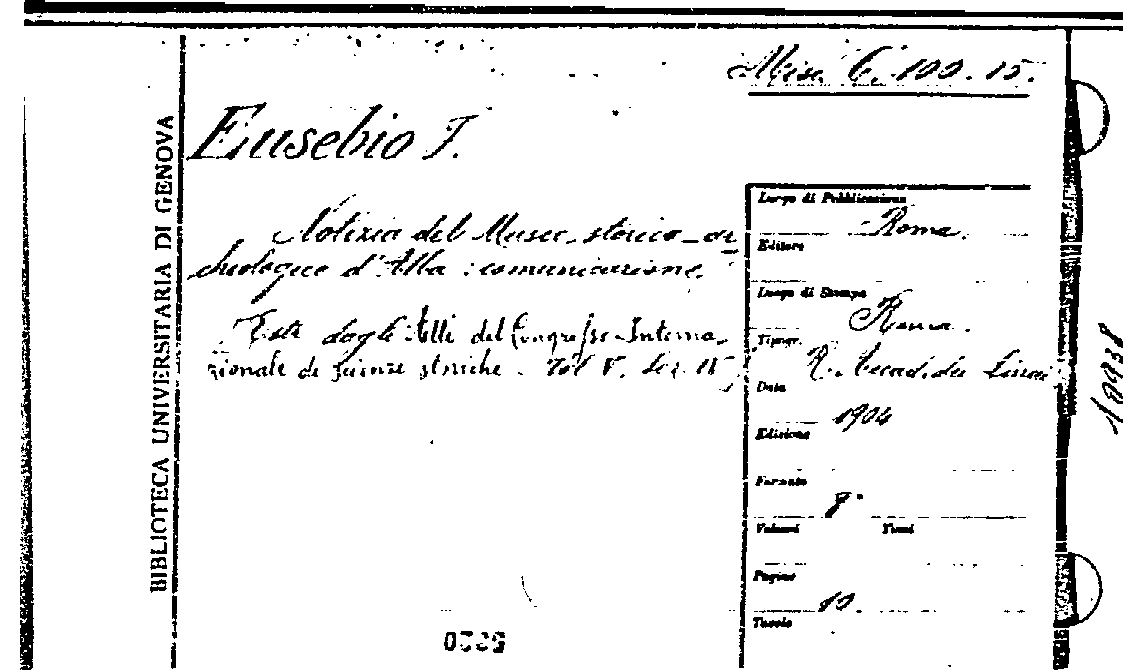 Misc. C. 100.15.
BIBLIOTECA UNIVERSITARIA DI GENOVA
Eusebio F.
Notizia del Museo storico-ar
cheologico d'Alba : comunicazione.
Estr. dagli Atti del Congresso Interna-
zionale di scienze storiche. Vol V. Sez. IV
Luogo di Pubblicazione
Roma.
Editore
Luogo di Stampa
Roma.
Tipogr.
R. Accad. dei Lincei
Data
1904
Edizione
Formato
8°
Volumi Tomi
Pagine
10.
Tavole
10938